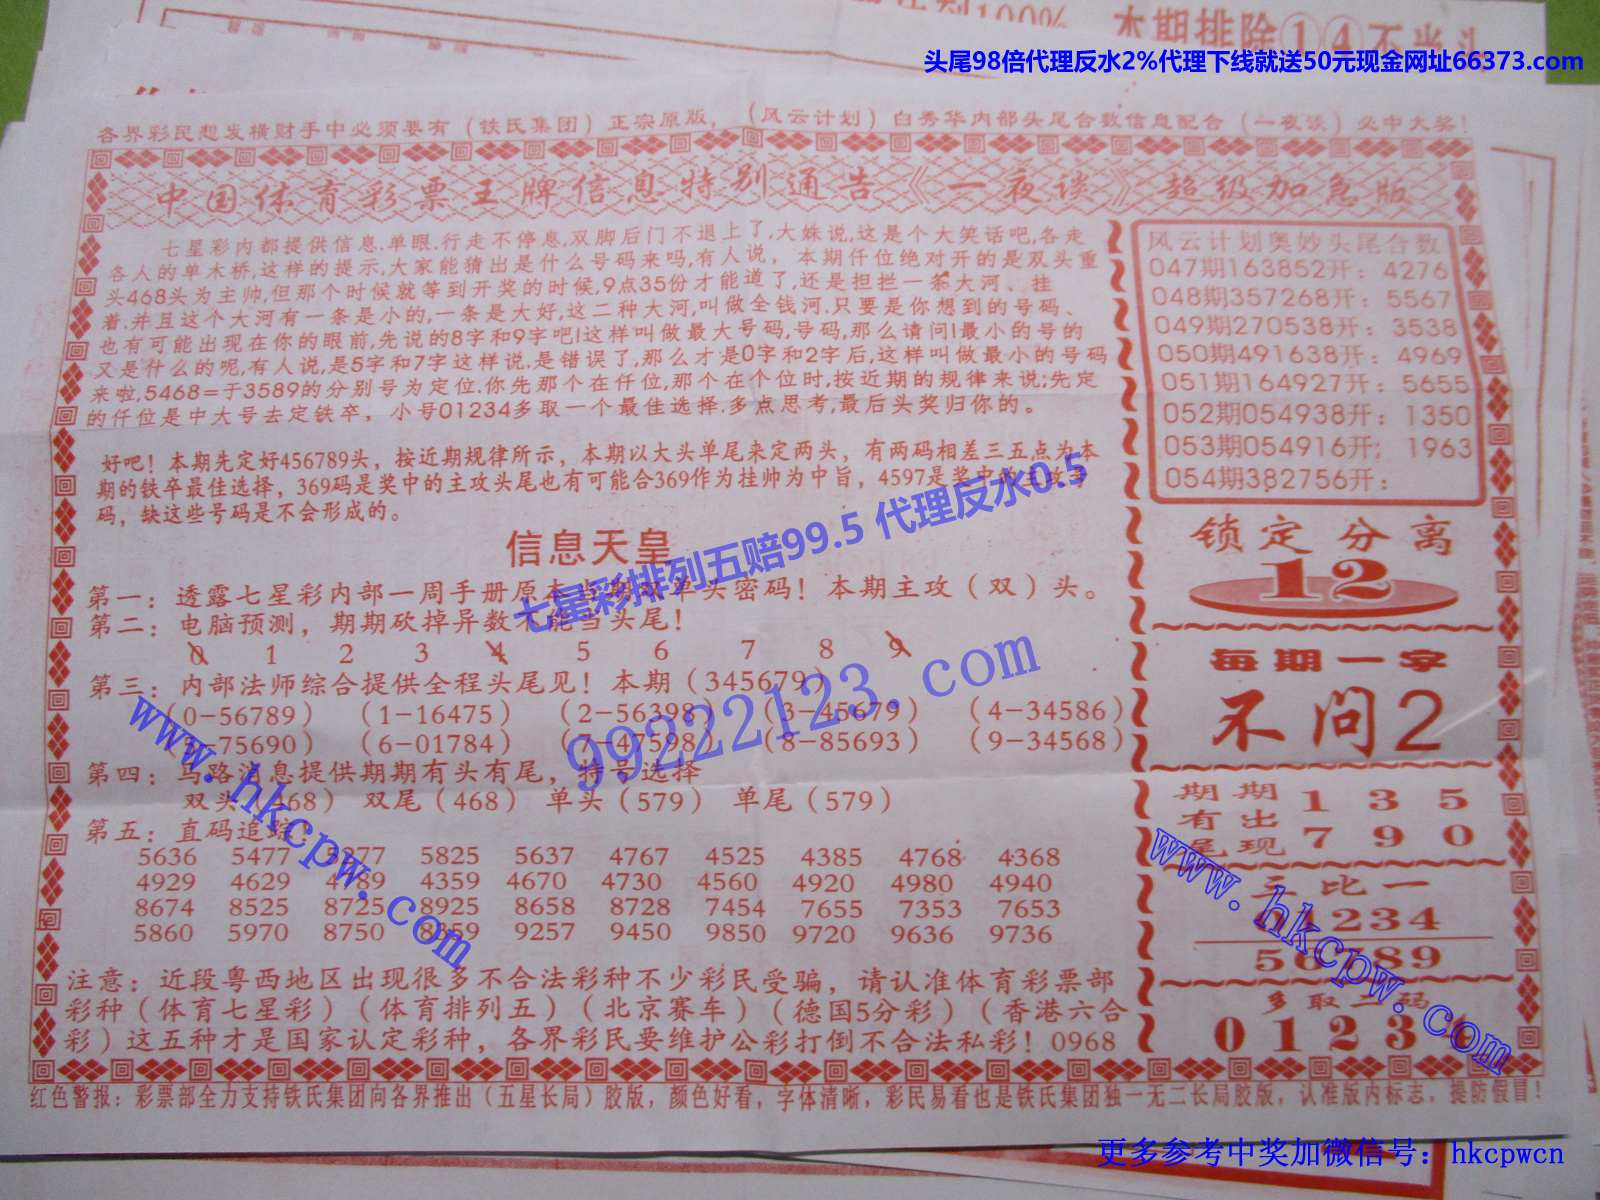 本期排除①④不当头
头尾98倍代理反水2%代理下线就送50元现金网址66373.com
各界彩民想发横财手中必须要有（铁氏集团）正宗原版，（风云计划）白秀华内部头尾合数信息配合（一夜谈）必中大奖！
中国体育彩票王牌信息特别通告《一夜谈》超级加急版
七星彩内都提供信息.单眼.行走不停息,双脚后门不退上了,大姝说,这是个大笑话吧,各走
各人的单木桥,这样的提示,大家能猜出是什么号码来吗,有人说，本期仟位绝对开的是双头重
头468头为主帅,但那个时候就等到开奖的时候,9点35份才能道了,还是担拦一条大河、挂
着.并且这个大河有一条是小的,一条是大好,这二种大河,叫做全钱河.只要是你想到的号码、
也有可能出现在你的眼前,先说的8字和9字吧!这样叫做最大号码,号码,那么请问!最小的号的
又是什么的呢,有人说,是5字和7字这样说.是错误了,那么才是0字和2字后,这样叫做最小的号码
来啦,5468=于3589的分别号为定位.你先那个在仟位,那个在个位时,按近期的规律来说;先定
的仟位是中大号去定铁卒，小号01234多取一个最佳选择.多点思考,最后头奖归你的。
好吧！本期先定好456789头，按近期规律所示，本期以大头单尾来定两头，有两码相差三五点为本
期的铁卒最佳选择，369码是奖中的主攻头尾也有可能合369作为挂帅为中旨，4597是奖中的主攻手
码，缺这些号码是不会形成的。
信息天皇
第一：透露七星彩内部一周手册原本当期双单头密码！本期主攻（双）头。
第二：电脑预测，期期砍掉异数不能当头尾！
0 1 2 3 4 5 6 7 8 9
第三：内部法师综合提供全程头尾见！本期（345679）
（0-56789）（1-16475）（2-56398）（3-45679）（4-34586）
（5-75690）（6-01784）（7-47598）（8-85693）（9-34568）
第四：马路消息提供期期有头有尾，特号选择
双头（468） 双尾（468） 单头（579） 单尾（579）
第五：直码追踪！
5636 5477 5277 5825 5637 4767 4525 4385 4768 4368
4929 4629 4789 4359 4670 4730 4560 4920 4980 4940
8674 8525 8725 8925 8658 8728 7454 7655 7353 7653
5860 5970 8750 8359 9257 9450 9850 9720 9636 9736
注意：近段粤西地区出现很多不合法彩种不少彩民受骗，请认准体育彩票部
彩种（体育七星彩）（体育排列五）（北京赛车）（德国5分彩）（香港六合
彩）这五种才是国家认定彩种，各界彩民要维护公彩打倒不合法私彩！0968
风云计划奥妙头尾合数
047期163852开：4276
048期357268开：5567
049期270538开：3538
050期491638开：4969
051期164927开：5655
052期054938开：1350
053期054916开；1963
054期382756开：
锁定分离
12
每期一字
不问2
期期 1 3 5
有出
尾现 7 9 0
三比一
01234
56789
多取二码
0 1 2 3 4
红色警报：彩票部全力支持铁氏集团向各界推出（五星长局）胶版，颜色好看，字体清晰，彩民易看也是铁氏集团独一无二长局胶版，认准版内标志，提防假冒！
七星彩排列五赔99.5 代理反水0.5
99222123.com
www.hkcpw.com
www.hkcpw.com
更多参考中奖加微信号：hkcpwcn